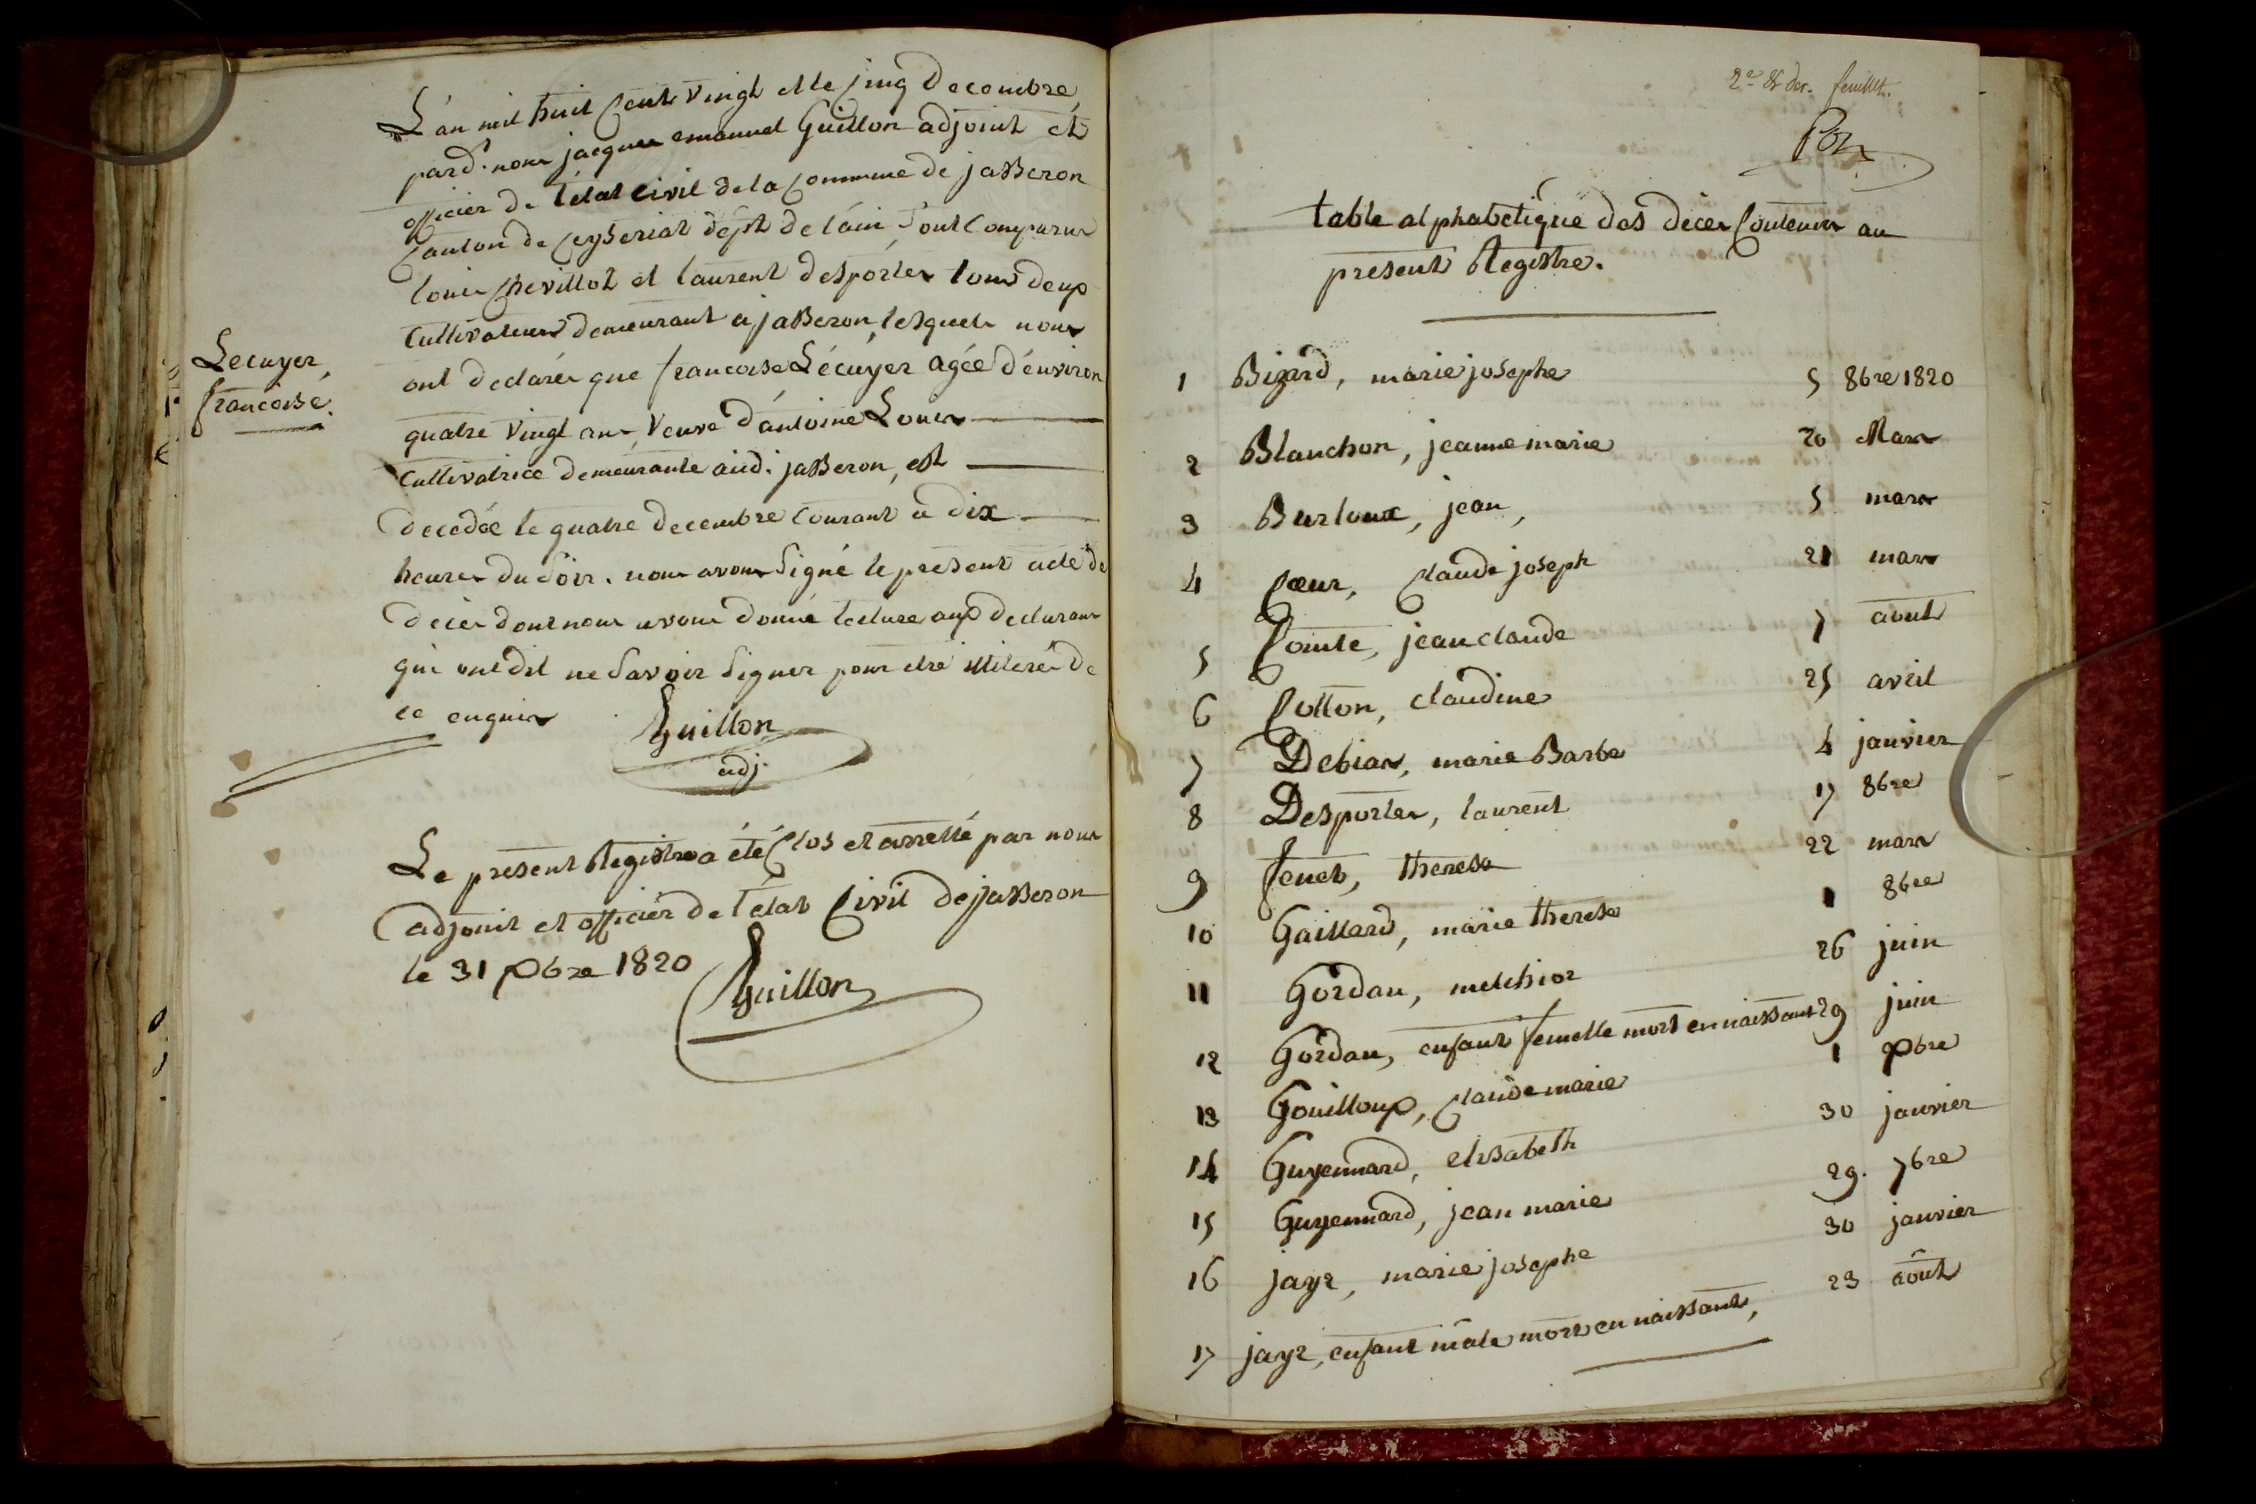 L'an mil huit cent vingt et le cinq Decembre
pard. nous jacques emanuel Guillon adjoint et
officier de l'état civil de la commune de jasseron
canton de ceyseriat dépt de l'ain, sont comparus
louis chevillot et laurent desportes tous deux
cultivateurs demeurant à jasseron, lesquels nous
ont declarés que francoise Lécuyer agée d'environ
quatre vingt ans, veuve d'antoine Louis
cultivatrice demeurante aud. jasseron, est
decedée le quatre decembre courant à dix
heures du soir. nous avons signé le present acte de
décès dont nous avons donné lecture aux declarans
qui ont dit ne savoir signer pour etre illiterés de
ce enquis
Guillon
adj.
Lecuyer,
francoise.
Le present Registre a été clos et arretté par nous
adjoint et officier de l'état civil de jasseron
le 31 Xbre 1820
Guillon
2e & der. feuillet.
table alphabetique des décès contenus au
present Registre.
1 Bizard, marie josephe 5 8bre 1820
2 Blanchon, jeanne marie 20 Mars
3 Burloux, jean, 5 mars
4 Cœur, claude joseph 21 mars
5 Comte, jean claude 7 aout
6 Cotton, claudine 25 avril
7 Debias, marie Barbe 4 janvier
8 Desportes, laurent 17 8bre
9 fenet, therese 22 mars
10 Gaillard, marie therese 1 8bre
11 Gordan, melchior 26 juin
12 Gordan, enfant femelle mort en naissant 29 juin
13 Gouilloux, claude marie 1 Xbre
14 Guyennard, elisabeth 30 janvier
15 Guyennard, jean marie 29. 7bre
16 jayr, marie josephe 30 janvier
17 jayr, enfant mâle mort en naissant, 23 août